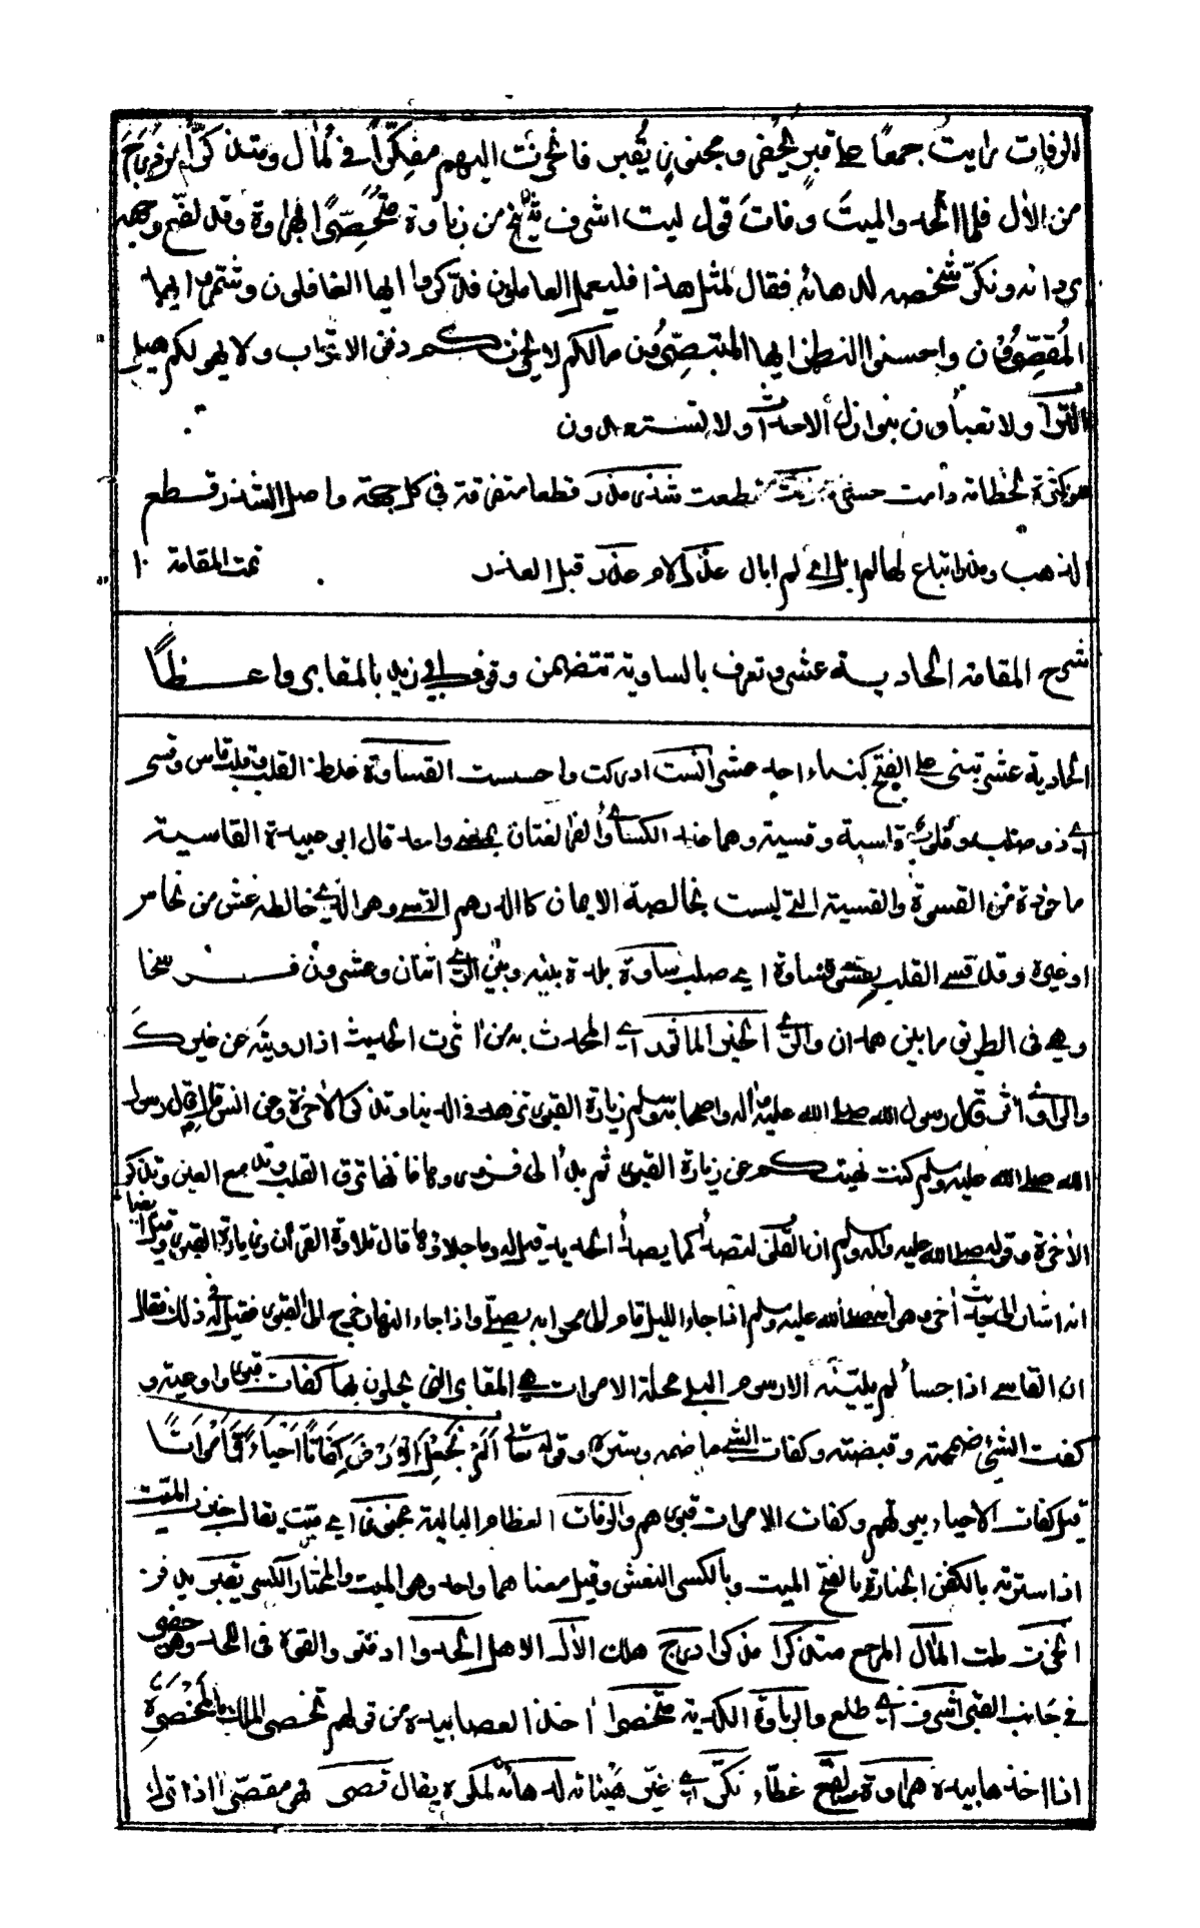 الرفات رايت جمعا على قبر يحفر ومجنوز يقبر فانحزت اليهم مفكرا في المآل ومتذكرا من درج
من الآل فلما الحدوا الميت وفات قول ليت اشرف شيخ من رباوة متخصرا بهراوة وقد لفع وجهه
بردائه ونكر شخصه لدهائه فقال لمثل هذا فليعمل العاملون فادكروا ايها الغافلون وشمروا ايها
المقصرون واحسنوا النظر ايها المتبصرون مالكم لا يحزنكم دفن الاتراب ولا يهولكم هيل
التراب ولا تعبأون بنوازل الاحداث ولا تستعدون
قطعت شذر مذر قطعا متفرقة في كل جهة واصل الشذر قطع
الذهب ومذر اتباع لها لم ابل اي لم ابال عذر لام عذر قبل العذر تمت المقامة ١٠
شرح المقامة الحادية عشر وتعرف بالساوية تتضمن وقوف ابي زيد بالمقابر واعظا
الحادية عشر تبنى على الفتح كبناء احد عشر آنست ادركت واحسست القساوة غلظ القلب وقلب قاس وقسي
اي ذو صلب وقلوب قاسية وقسية وهما عند الكسائي والفرا لغتان بمعنى واحد قال ابو عبيدة القاسية
ماخوذة من القسوة والقسية التي ليست بخالصة الايمان كالدرهم القسي وهو الذي خالطه غش من نحاس
او غيره وقد قسي القلب يقسى قساوة اي صلب ساوة بلدة بينه وبين الري اثنان وعشرون فرسخا
وهي في الطريق ما بين همدان والري الخبر الماثور اي المحدث به من اثرت الحديث اذا رويته عن غيرك
والراوي اثر قال رسول الله صلى الله عليه وآله واصحابه وسلم زيارة القبور تزهد في الدنيا وتذكر الآخرة وعن انس قال قال رسول
الله صلى الله عليه وسلم كنت نهيتكم عن زيارة القبور ثم بدأ لي فزوروها فانها ترق القلب وتدمع العين وتذكر
الآخرة وقوله صلى الله عليه وآله وسلم ان القلوب لتصدأ كما يصدأ الحديد قيل له وما جلاؤها قال تلاوة القرآن وزيارة القبور وقيل ايضا
انه اشار الى حديث آخر وهو انه صلى الله عليه وسلم اذا جاء الليل قام الى محرابه يصلي واذا جاء النهار خرج الى القبور فقيل له في ذلك فقال
ان القاسي اذا جسأ لم يلينه الا رسوم البلي محلة الاموات هي المقابر التي يحلون بها كفات قبور واوعية و
كفت الشئ ضممته وقبضته وكفات الشئ ما ضمه وستره وقوله تعالى اَلَمْ نَجْعَلِ الْاَرْضَ كِفَاتًا اَحْيَاءً وَّاَمْوَاتًا
قيل كفات الاحياء بيوتهم وكفات الاموات قبورهم والرفات العظام البالية مجنوز اي ميت يقال جنزت الميت
اذا سترته بالكفن الجنازة بالفتح الميت وبالكسر النعش وقيل معناهما واحد وهو الميت والمختار الكسر يقبر يدفن
انحزت ملت المآل المرجع متذكرا مذكرا درج هلك الآل الاهل الحدوا ادفنوا والقوه في اللحد وهو حفير
في جانب القبر اشرف اي طلع والرباوة الكدية متخصرا اخذ العصا بيده من قولهم تخصر الملك بالمخصرة
اذا اخذها بيده هراوة لفع غطاء نكر اي غير هيئاته لدهائه لمكره يقال قصر فهو مقصر اذا ترك